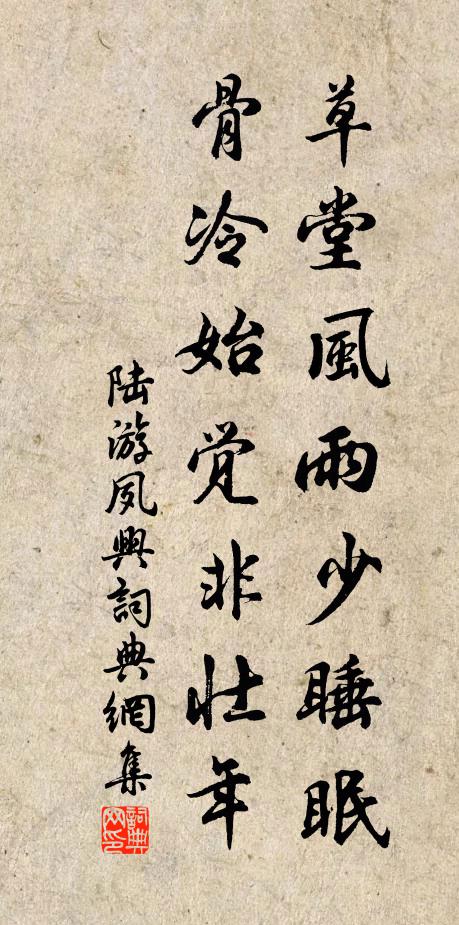 草堂風雨少睡眠
骨冷始覚非壮年
陆游夙興詞典網集
詞典网印